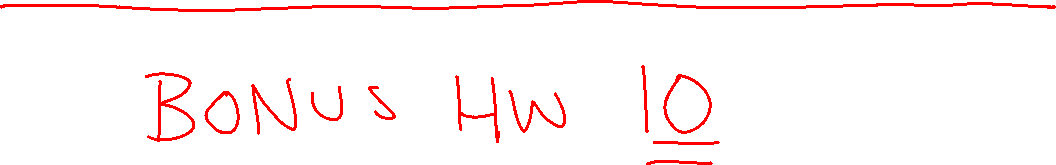 BONUS HW 10